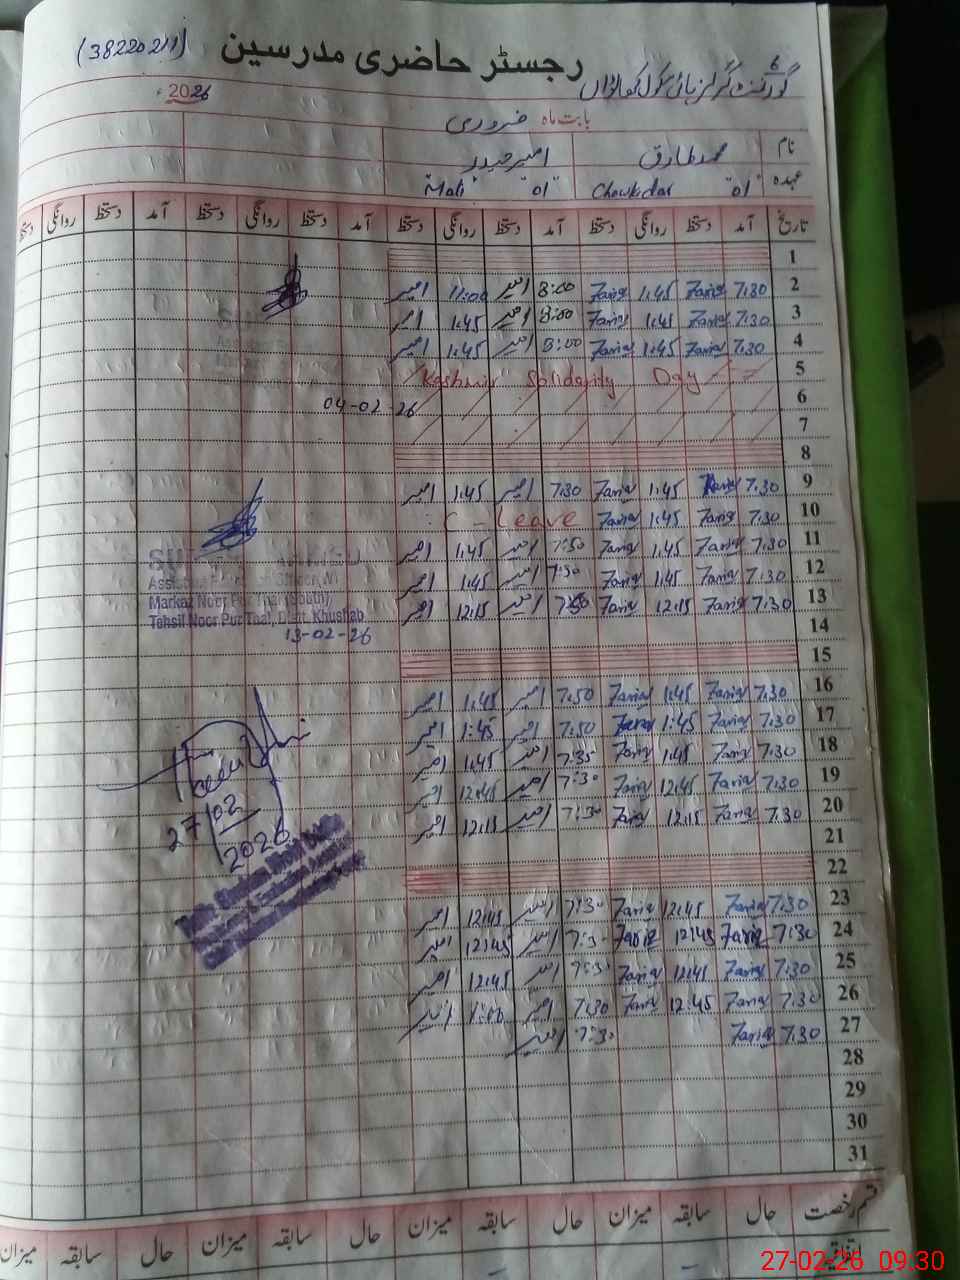 (38220211)
رجسٹر حاضری مدرسین
گورنمنٹ گرلز ہائی سکول کھاواں
2026ء
بابت ماہ فروری
نام محمد طارق امیر حیدر
عہدہ "01" Chowkdar "01" Mali
تاریخ آمد دستخط روانگی دستخط آمد دستخط روانگی دستخط آمد دستخط روانگی دستخط آمد دستخط روانگی دستخط
1
2 7:30 Tariq 1:45 Tariq 8:00 امیر 11:00 امیر
3 7:30 Tariq 1:45 Tariq 8:00 امیر 1:45 امیر
4 7:30 Tariq 1:45 Tariq 8:00 امیر 1:45 امیر
5 Kashmir Solidarity Day
6
04-02-26
7
8
9 7:30 Tariq 1:45 Tariq 7:30 امیر 1:45 امیر
10 7:30 Tariq 1:45 Tariq C - Leave
11 7:30 Tariq 1:45 Tariq 7:50 امیر 1:45 امیر
12 7:30 Tariq 1:45 Tariq 7:50 امیر 1:45 امیر
13 7:30 Tariq 12:15 Tariq امیر 12:15 امیر
Markaz Noor Pur Thal (South)
Tehsil Noor Pur Thal, Distt. Khushab
13-02-26
14
15
16 7:30 Tariq 1:45 Tariq 7:50 امیر 1:45 امیر
17 7:30 Tariq 1:45 Tariq 7:50 امیر 1:45 امیر
18 7:30 Tariq 1:45 Tariq 7:35 امیر 1:45 امیر
19 7:30 Tariq 12:45 Tariq 7:30 امیر 12:45 امیر
20 7:30 Tariq 12:15 Tariq 7:30 امیر 12:15 امیر
27/02
2026
21
22
23 7:30 Tariq 12:45 Tariq 7:30 امیر 12:45 امیر
24 7:30 Tariq 12:45 Tariq 7:30 امیر 12:45 امیر
25 7:30 Tariq 12:45 Tariq امیر 12:45 امیر
26 7:30 Tariq 12:45 Tariq 7:30 امیر امیر
27 7:30 Tariq 7:30 امیر
28
29
30
31
قسم رخصت حال سابقہ میزان حال سابقہ میزان حال سابقہ میزان حال سابقہ میزان
اتفاقیہ
27-02-26 09.30